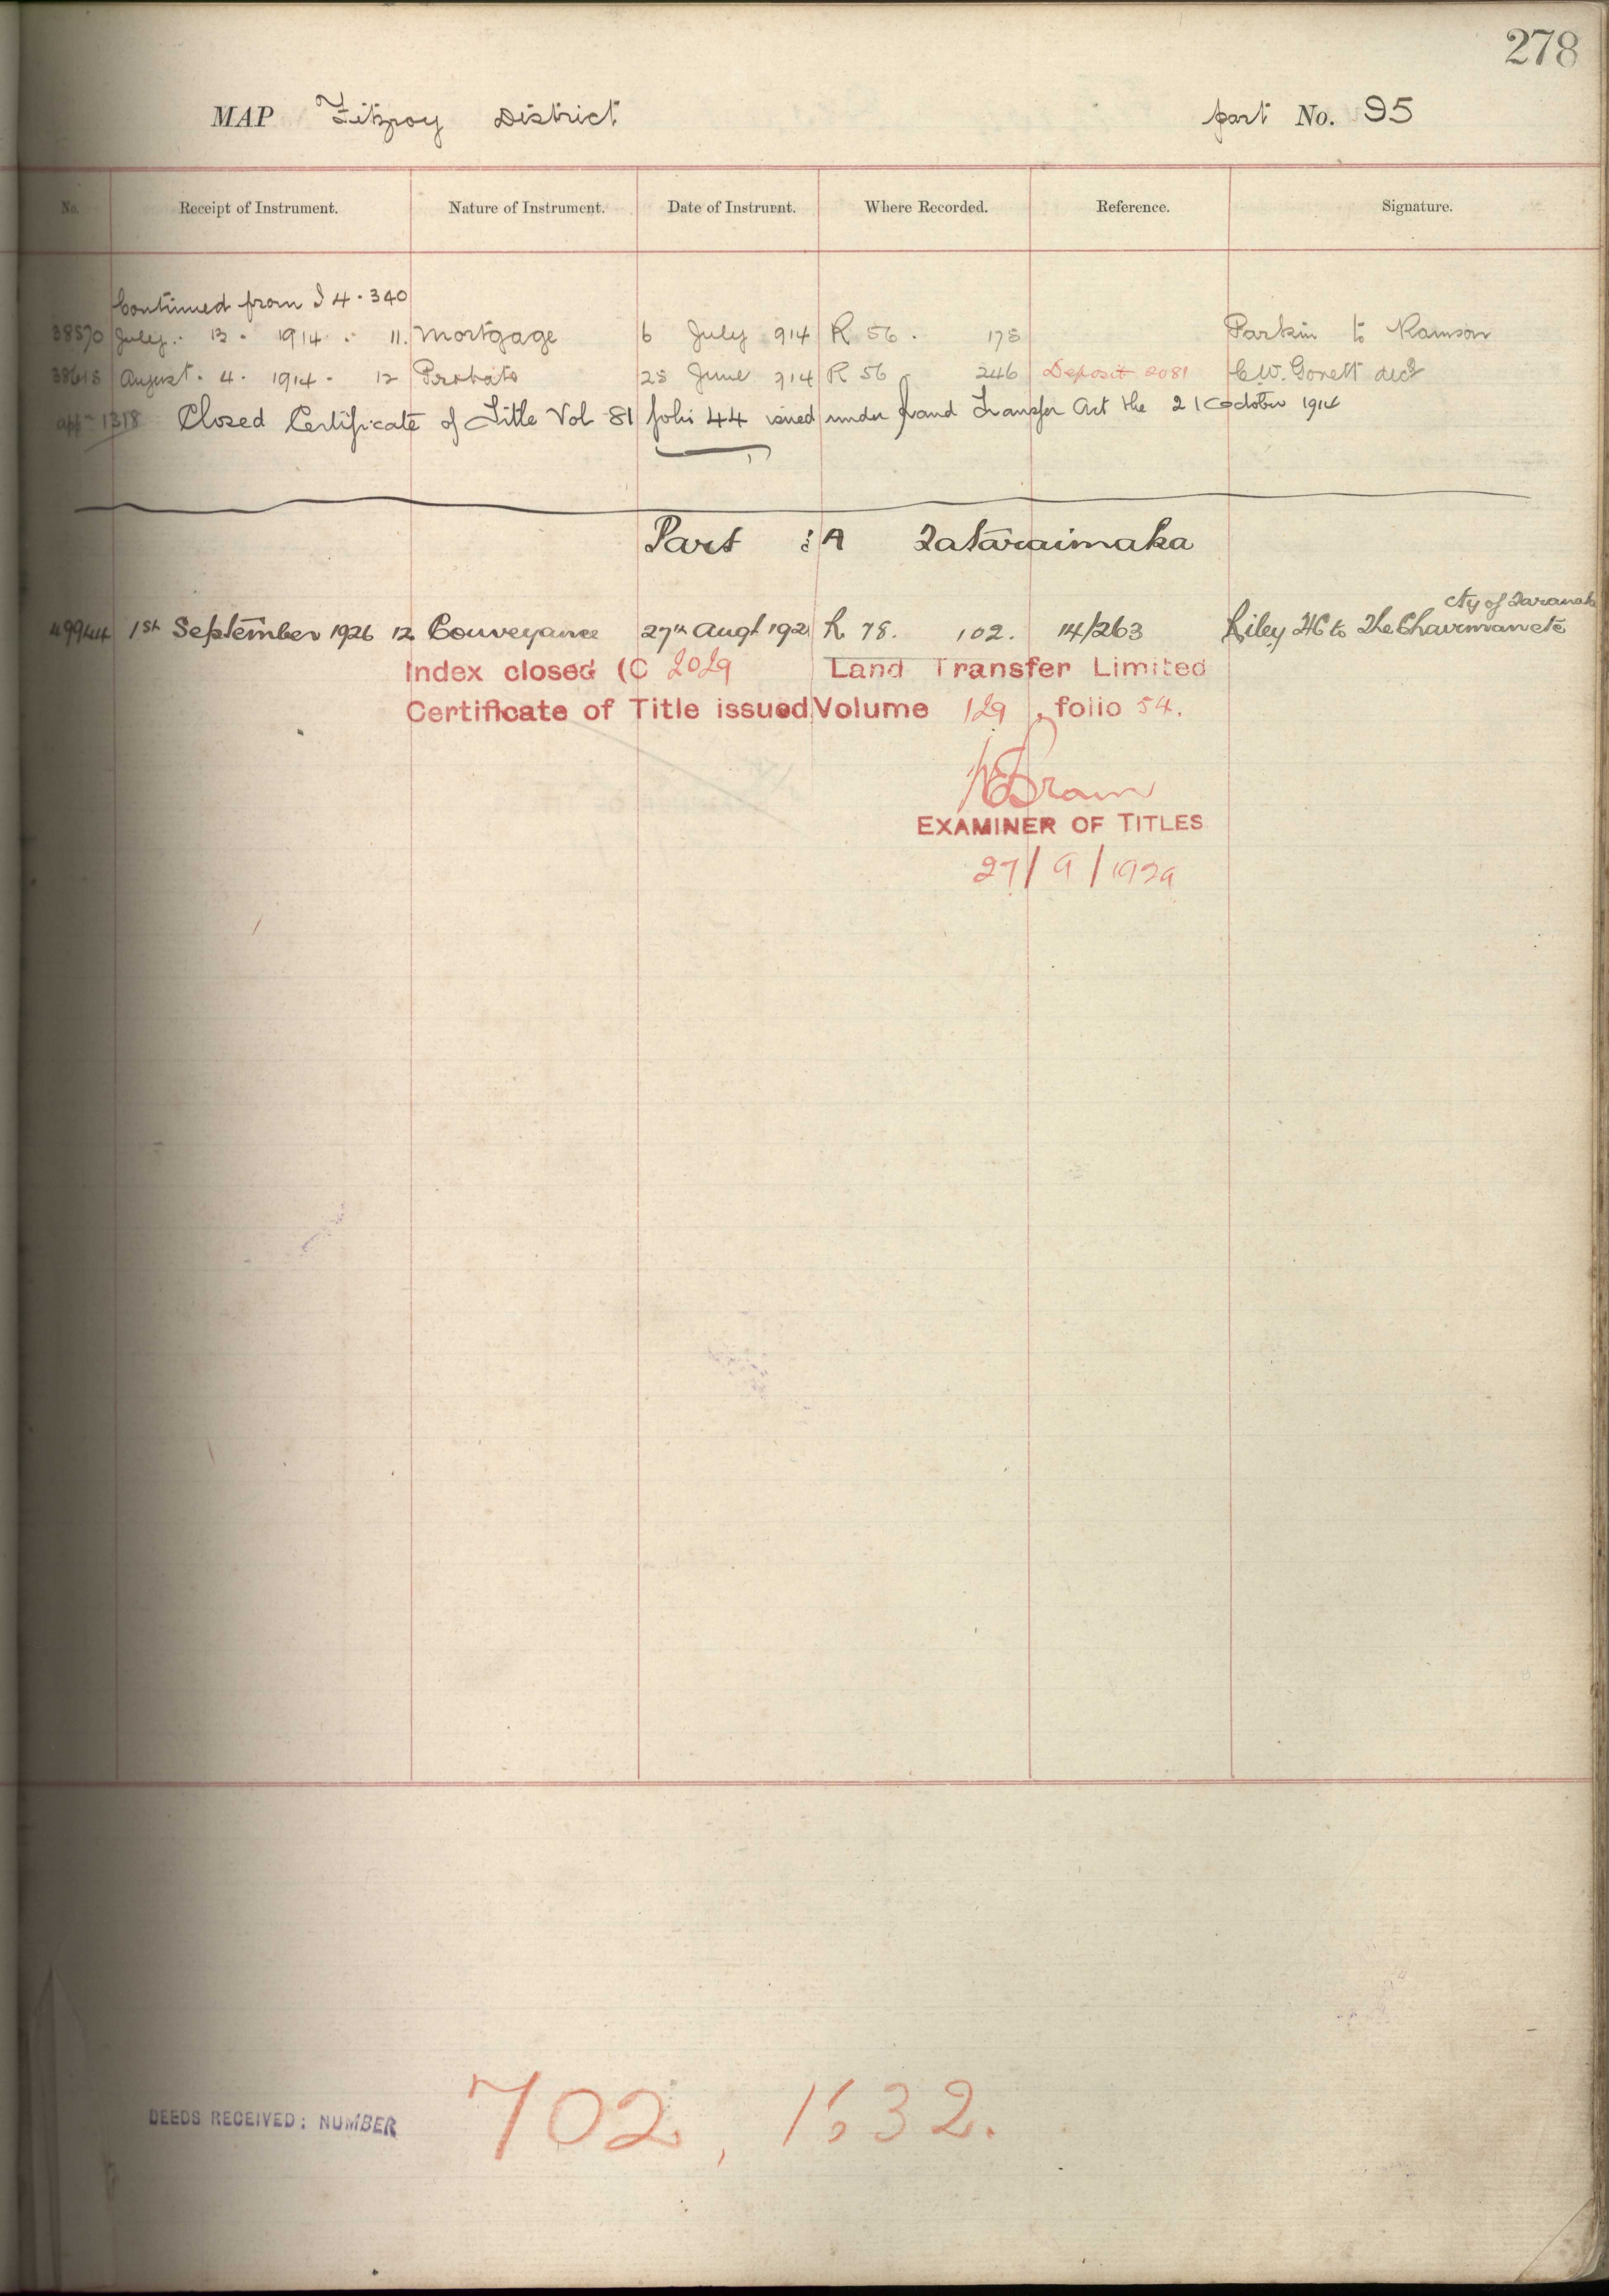 278
MAP Fitzroy District part No. 95
No. Receipt of Instrument. Nature of Instrument. Date of Instrument. Where Recorded. Reference. Signature.
Continued from I 4 · 340
38570 July · 13 · 1914 · 11. Mortgage 6 July 914 R 56 · 175 Parkin to Ramson
38618 August · 4 · 1914 · 12 Probate 25 June 914 R 56 246 Deposit 2081 C.W. Govett decd
appn 1318 Closed Certificate of Title Vol 81 folio 44 issued under Land Transfer Act the 21 October 1914
Part : A Tataraimaka
49944 1st September 1926 12 Conveyance 27th Augt 192 R 78. 102. 14/263 Riley HC to The Chairman etc
Cty of Taranaki
Index closed (C 2029 Land Transfer Limited
Certificate of Title issued Volume 129, folio 54.
EXAMINER OF TITLES
27/9/1929
DEEDS RECEIVED: NUMBER 702, 1632.